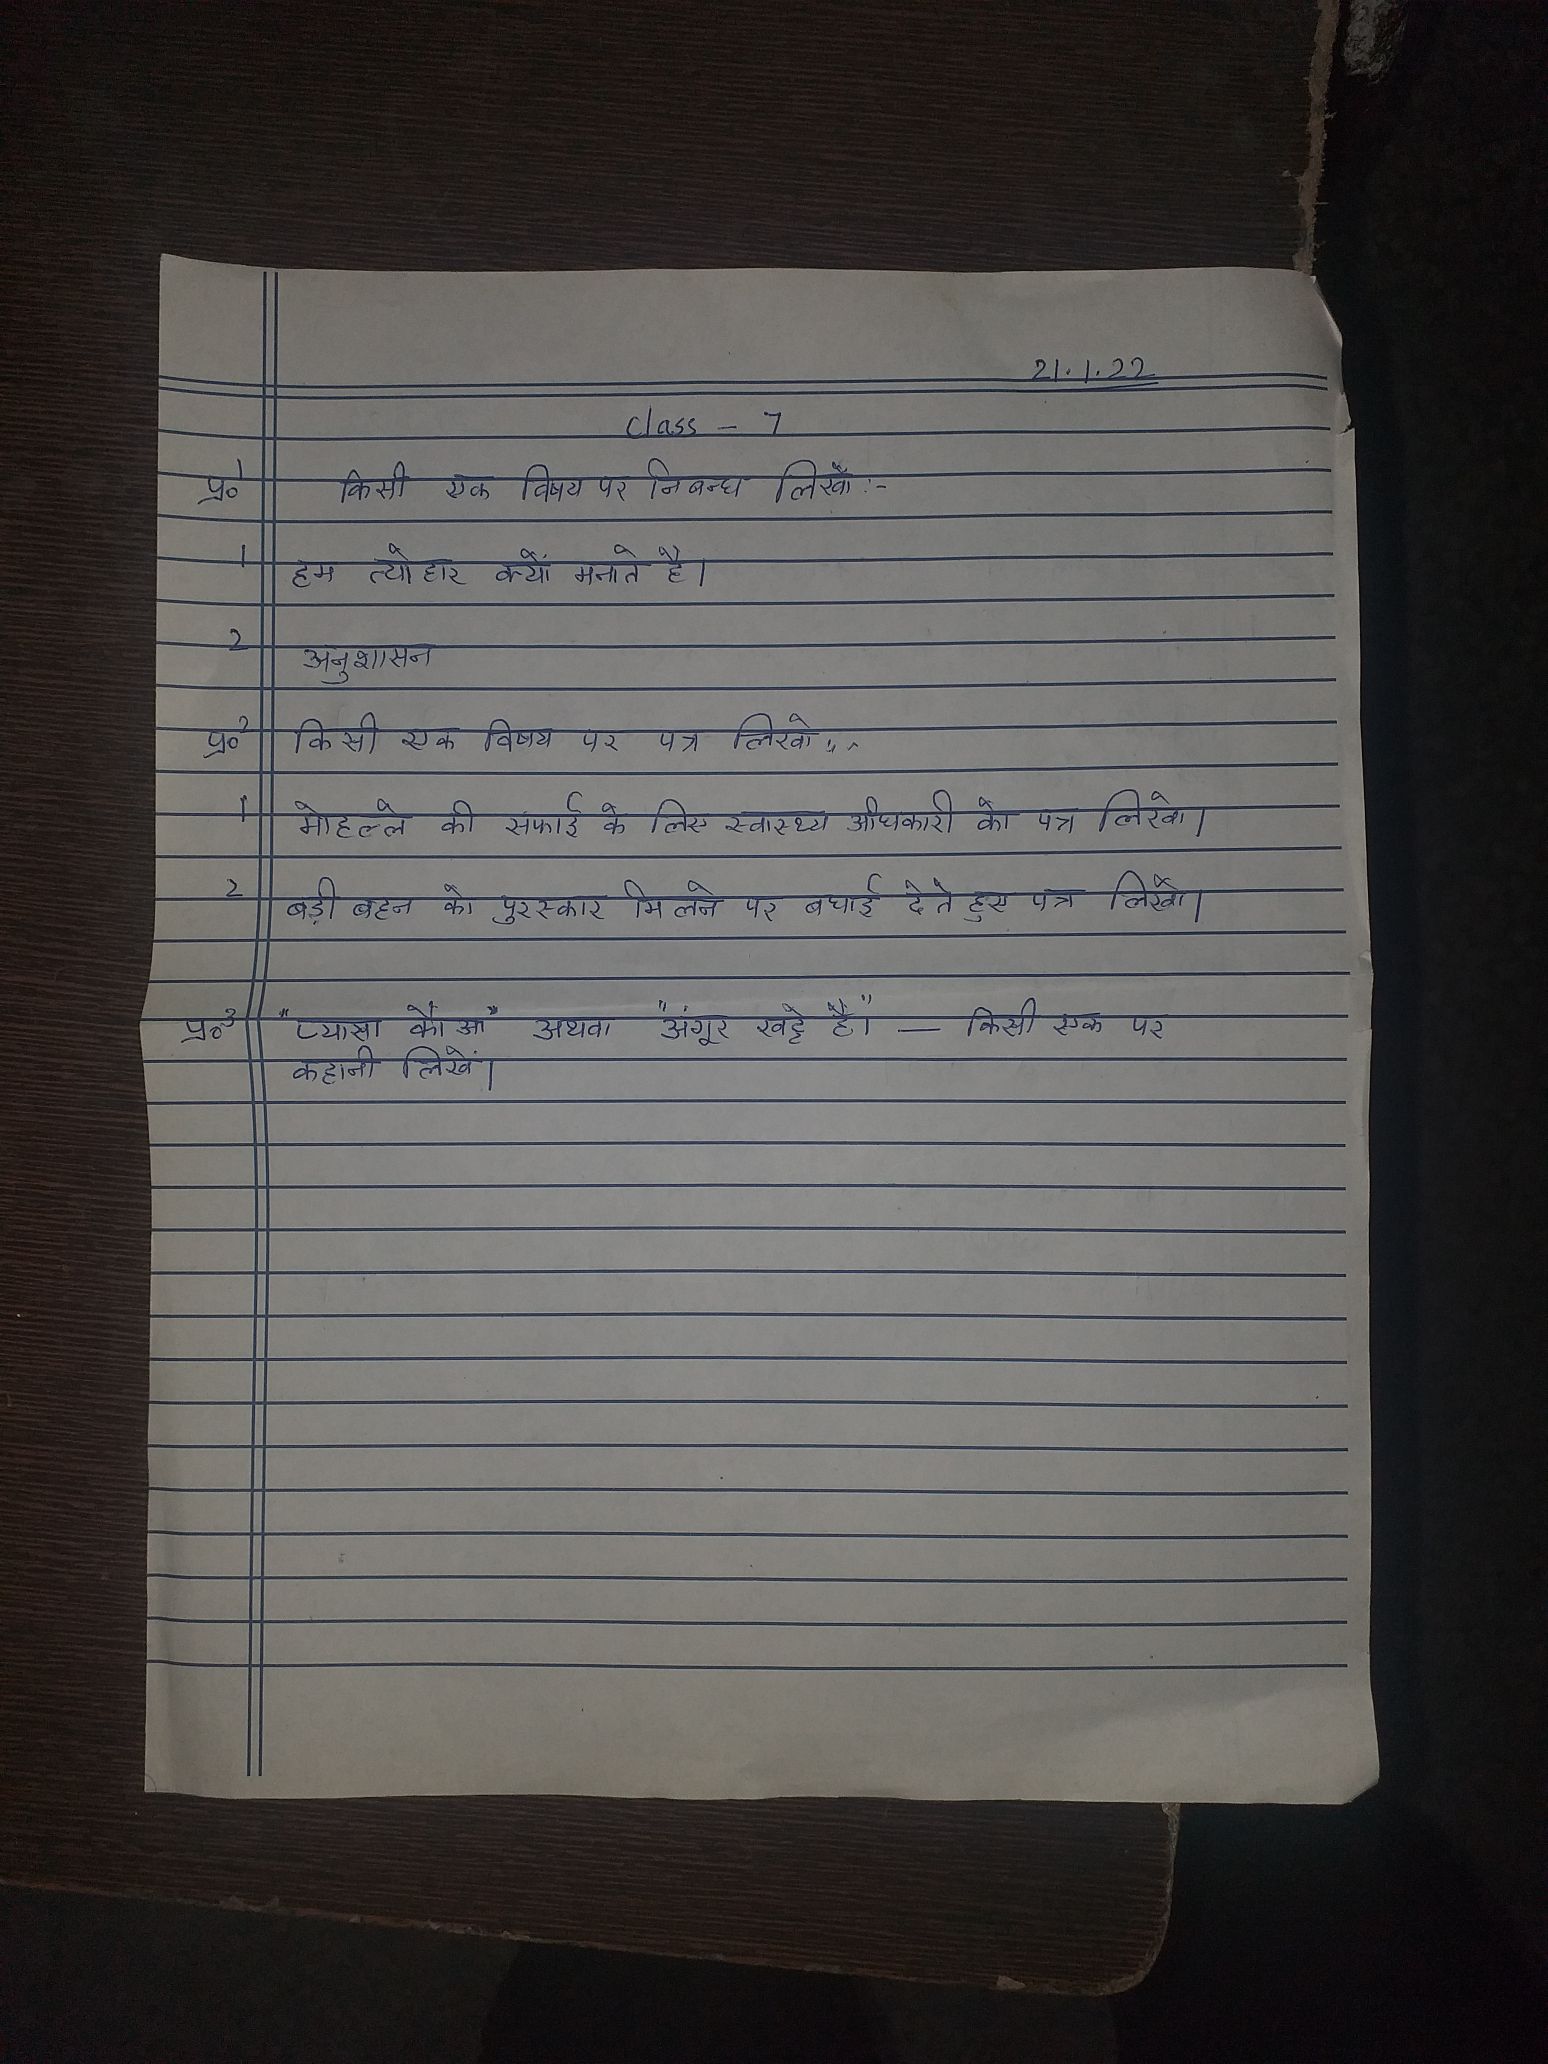 21.1.22
Class - 7
प्र०1 किसी एक विषय पर निबन्ध लिखो :-
1 हम त्योहार क्यों मनाते है।
2 अनुशासन
प्र०2 किसी एक विषय पर पत्र लिखो :-
1 मोहल्ले की सफाई के लिए स्वास्थ्य अधिकारी को पत्र लिखो।
2 बड़ी बहन को पुरस्कार मिलने पर बधाई देते हुए पत्र लिखो।
प्र०3 "प्यासा कौआ" अथवा "अंगूर खट्टे है।" — किसी एक पर
कहानी लिखें।